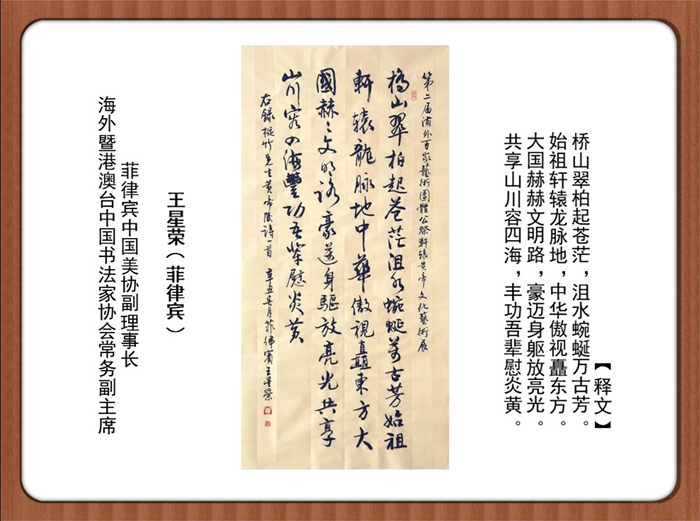 【释文】
桥山翠柏起苍茫，沮水蜿蜒万古芳。
始祖轩辕龙脉地，中华傲视矗东方。
大国赫赫文明路，豪迈身躯放亮光。
共享山川容四海，丰功吾辈慰炎黄。
第二届海外百家藝術團體公祭軒辕黄帝文化藝術展
橋山翠柏起苍茫沮水蜿蜒萬古芳始祖
軒辕龍脉地中華傲視矗東方大
國赫〻文明路豪邁身驅放亮光共享
山川容四海豐功吾輩慰炎黄
右録竹先生黄帝陵詩一首 辛丑月菲律賓王星榮
王星荣（菲律宾）
菲律宾中国美协副理事长
海外暨港澳台中国书法家协会常务副主席